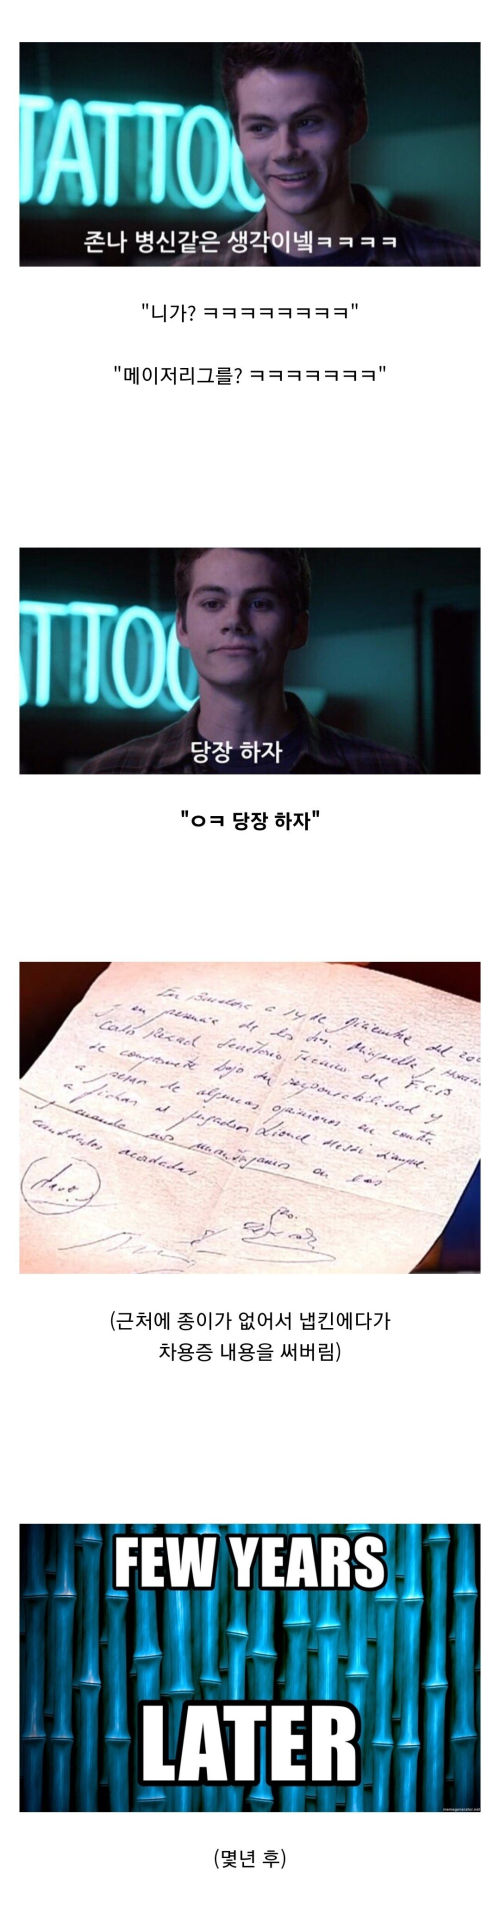 TATTOO
존나 병신같은 생각이넼ㅋㅋㅋㅋ
"니가? ㅋㅋㅋㅋㅋㅋㅋㅋ"
"메이저리그를? ㅋㅋㅋㅋㅋㅋㅋ"
TTOO
당장 하자
"ㅇㅋ 당장 하자"
En Barcelona a 14 de diciembre del 20
y en presencia de los Srs. Minguella y Horaci
Carlo Rexach Secretario Técnico del F.C.B
se compromete bajo su responsabilidad y
a pesar de algunas opiniones en contra
a fichar al jugador Lionel Messi
y cuando nos mantengamos en las
cantidades acordadas
(근처에 종이가 없어서 냅킨에다가
차용증 내용을 써버림)
FEW YEARS
LATER
memegenerator.net
(몇년 후)